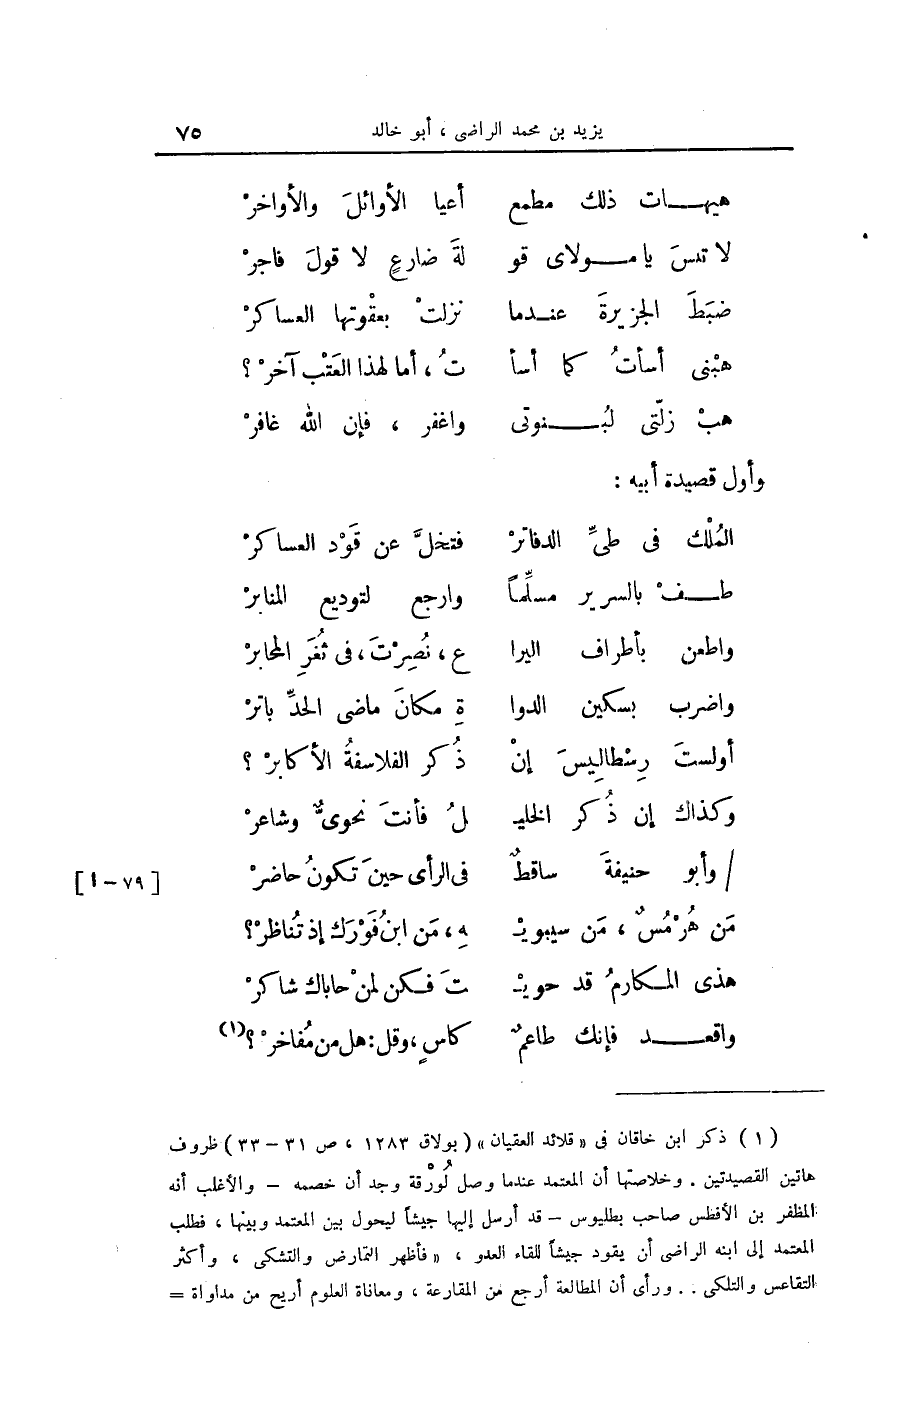 يزيد بن محمد الراضى ، أبو خالد ٧٥
هيهـــات ذلك مطمع أعيا الأوائلَ والأواخرْ
لا تنسَ يا مـــولاى قو لةَ ضارعٍ لا قولَ فاجرْ
ضبَطَ الجزيرةَ عنـدما نزلتْ بعقْوتها العساكرْ
هبْنى أسأتُ كما أسأ تُ ، أما لهذا العَتْب آخرْ ؟
هبْ زلّتى لبُـــنوتى واغفر ، فإن الله غافرْ
وأول قصيدة أبيه :
المُلْك فى طىِّ الدفاترْ فتخلَّ عن قَوْد العساكرْ
طـــفْ بالسرير مسلِّماً وارجع لتوديع المنابرْ
واطعن بأطراف اليرا ع ، نُصِرْتَ ، فى ثُغَرِ المحابرْ
واضرب بسكين الدوا ةِ مكانَ ماضى الحدِّ باترْ
أولستَ رِسْطالِيسَ إنْ ذُكر الفلاسفةُ الأكابرْ ؟
وكذاك إن ذُكر الخليـ لُ فأنتَ نحوىٌّ وشاعرْ
/ وأبو حنيفةَ ساقطٌ فى الرأى حينَ تكونُ حاضرْ [ ٧٩ – ا ]
مَن هُرْمُسٌ ، مَن سيبويْـ ـهِ ، مَن ابنُ فَوْرَك إذ تُناظرْ؟
هذى المـكارمُ قد حويْـ ـتَ فـكن لمنْ حاباك شاكرْ
واقعـــد فإنك طاعمٌ كاسٍ ، وقل : هل من مُفاخرْ ؟(١)
( ١ ) ذكر ابن خاقان فى « قلائد العقيان » ( بولاق ١٢٨٣ ، ص ٣١ – ٣٣ ) ظروف
هاتين القصيدتين . وخلاصتها أن المعتمد عندما وصل لُورْقة وجد أن خصمه – والأغلب أنه
المظفر بن الأفطس صاحب بطليوس – قد أرسل إليها جيشاً ليحول بين المعتمد وبينها ، فطلب
المعتمد إلى ابنه الراضى أن يقود جيشاً للقاء العدو ، « فأظهر التمارض والتشكى ، وأكثر
التقاعس والتلكى . . ورأى أن المطالعة أرجع من المقارعة ، ومعاناة العلوم أربح من مداواة =